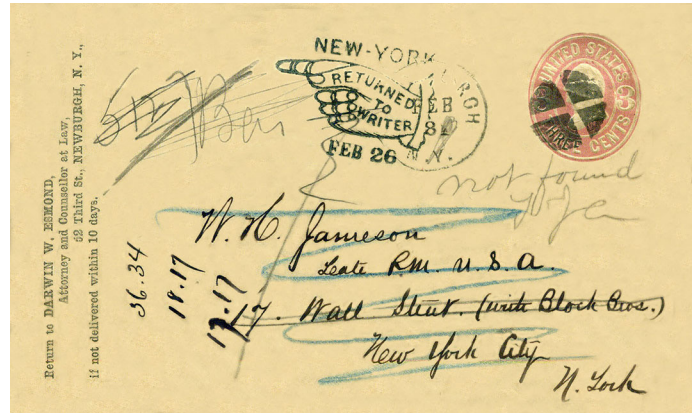 Return to DARWIN W. ESMOND,
Attorney and Counsellor at Law,
52 Third St., NEWBURGH, N. Y.,
if not delivered within 10 days.
NEW-YORK
RETURNED
TO
WRITER
FEB 26
FEB
N.Y.
UNITED STATES
THREE CENTS
not found
W. H. Jameson
Late P.M. U.S.A.
17. Wall Street. (with Block Bros.)
New York City
N. York
36.34
18.17
17.17